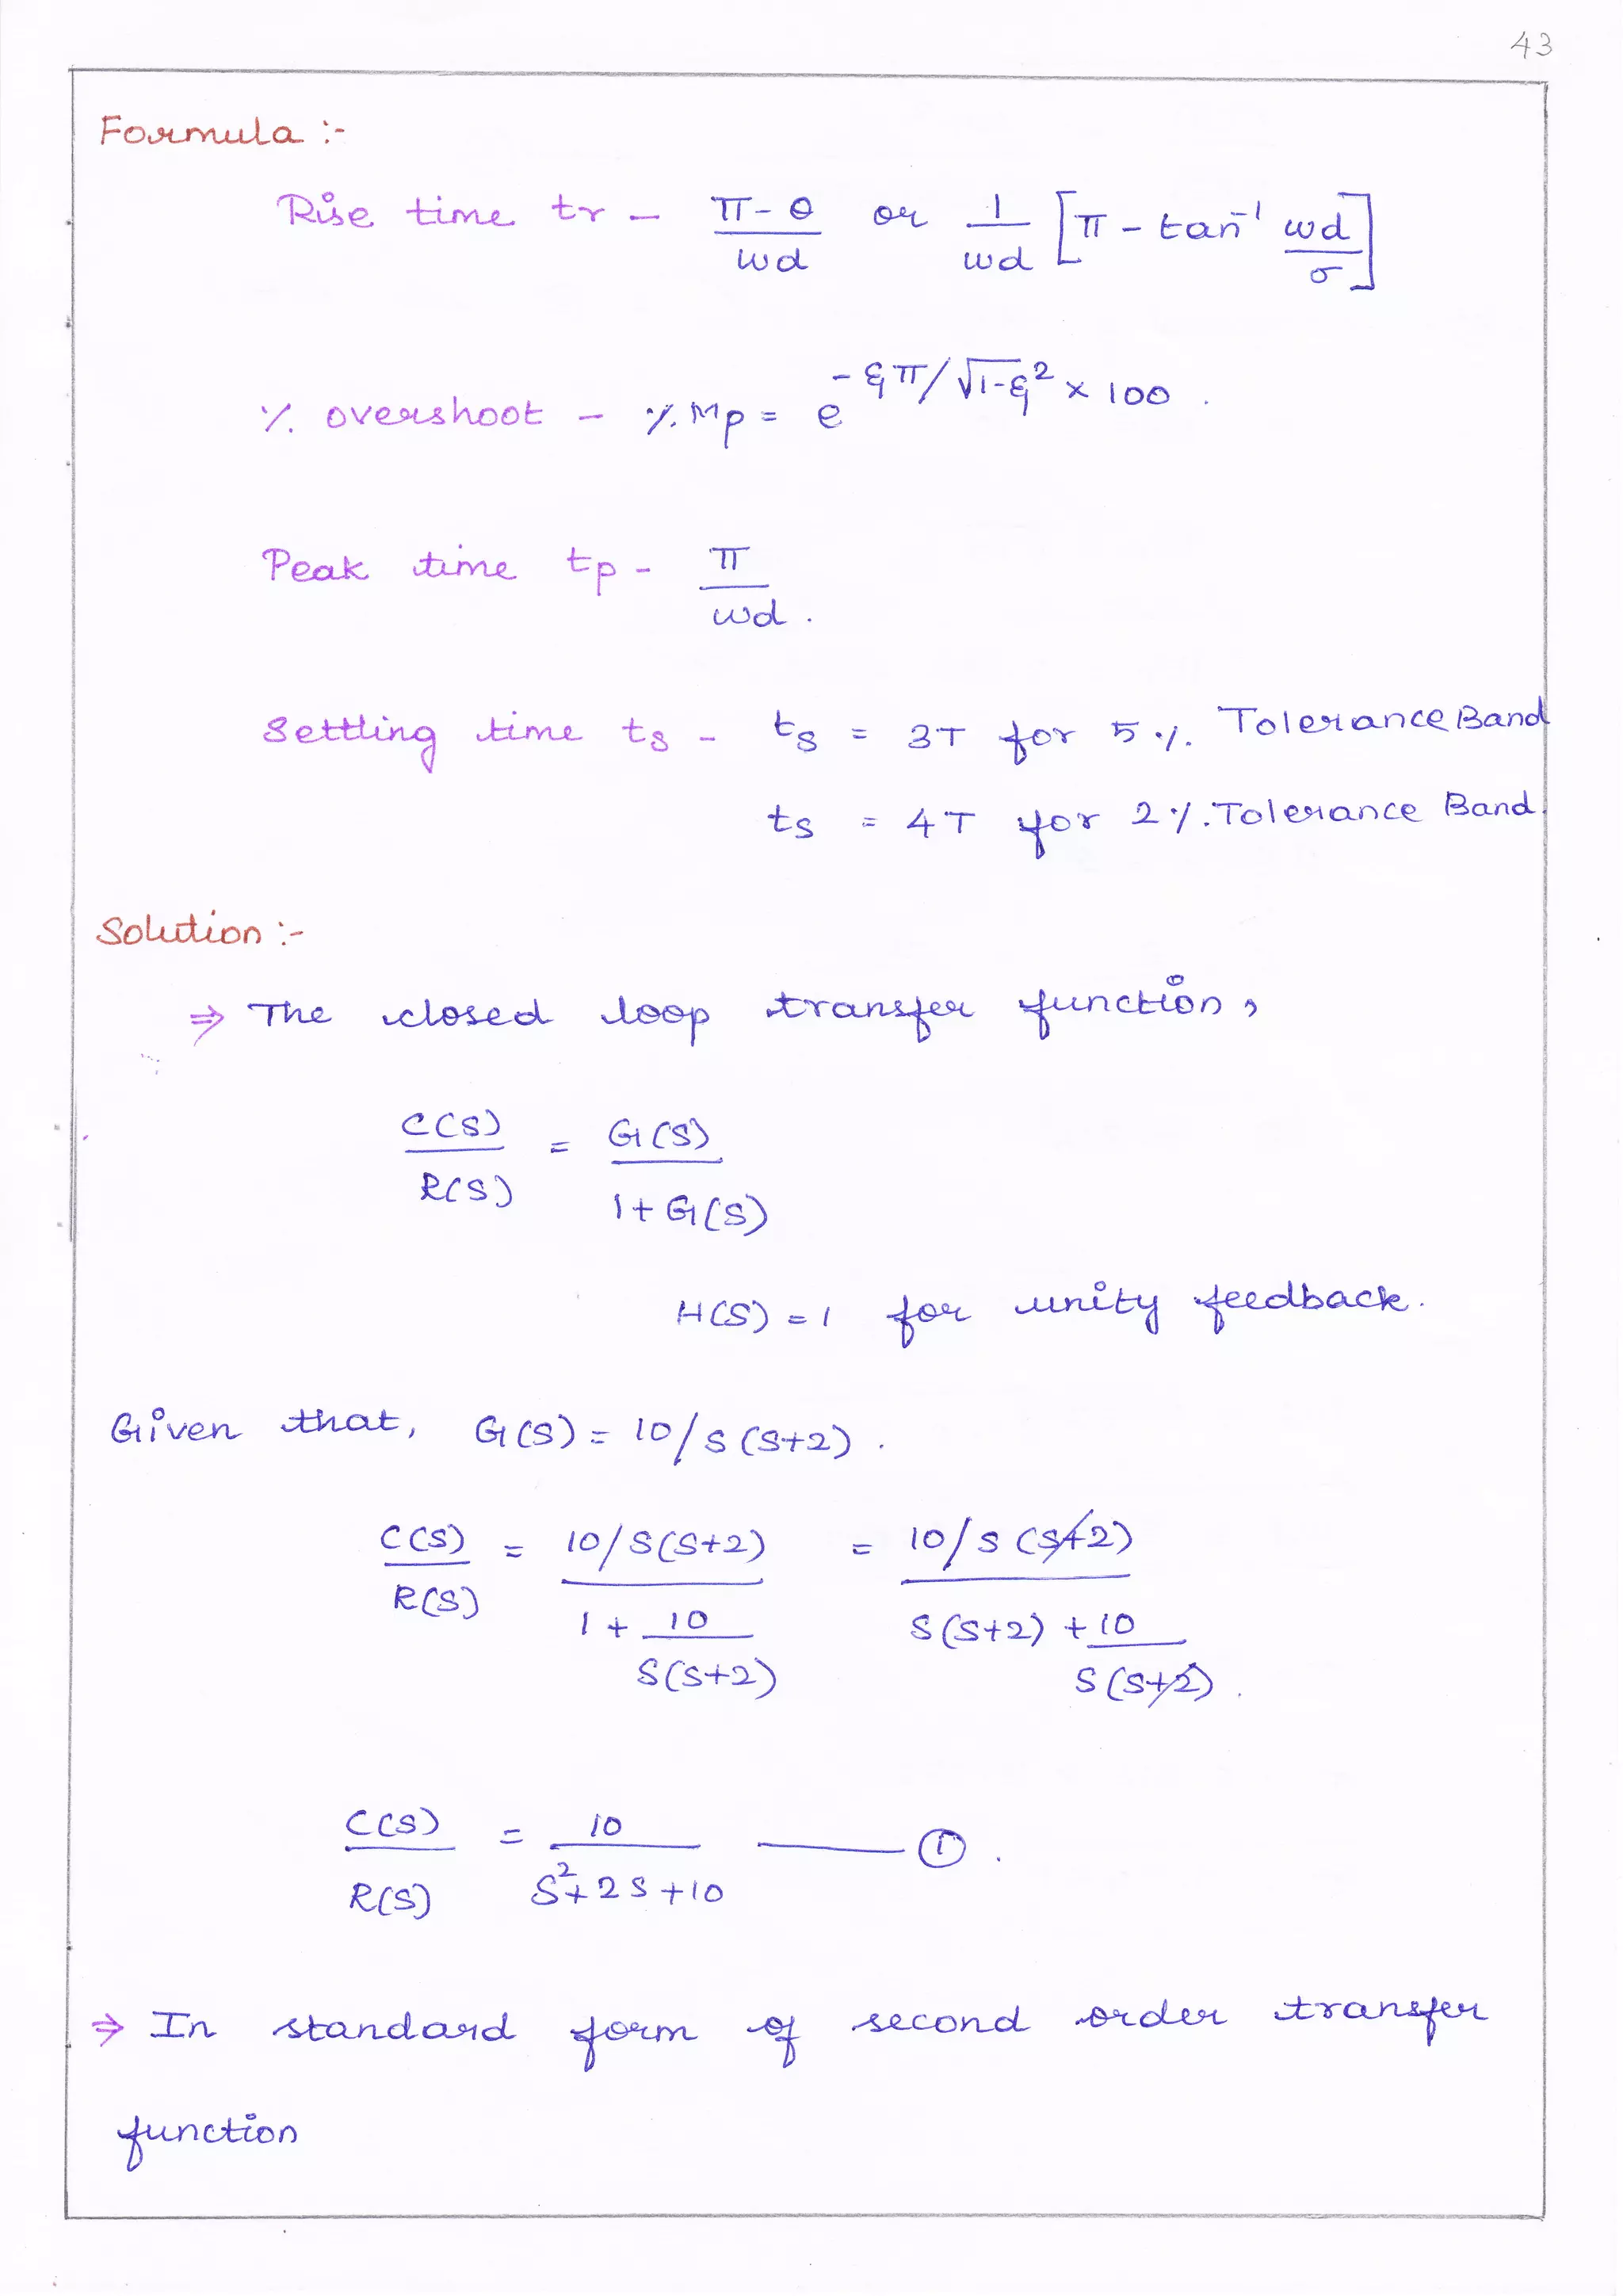 43
Formula :-
Rise time tr – π-θ/wd or 1/wd [π - tan⁻¹ wd/σ]
% overshoot – % Mp = e^-ξπ/√1-ξ² x 100 .
Peak time tp - π/wd .
Settling time ts - ts = 3T for 5 % Tolerance Band
ts = 4T for 2 % Tolerance Band.
Solution :-
⇒ The closed loop transfer function,
C(S)/R(S) = G(S)/1+G(S)
H(S) = 1 for unity feedback.
Given that, G(S) = 10/S(S+2) .
C(S)/R(S) = 10/S(S+2) / 1 + 10/S(S+2) = 10/S(S+2) / S(S+2) + 10/S(S+2) .
C(S)/R(S) = 10/S²+2S+10 —— ① .
⇒ In standard form of second order transfer
function